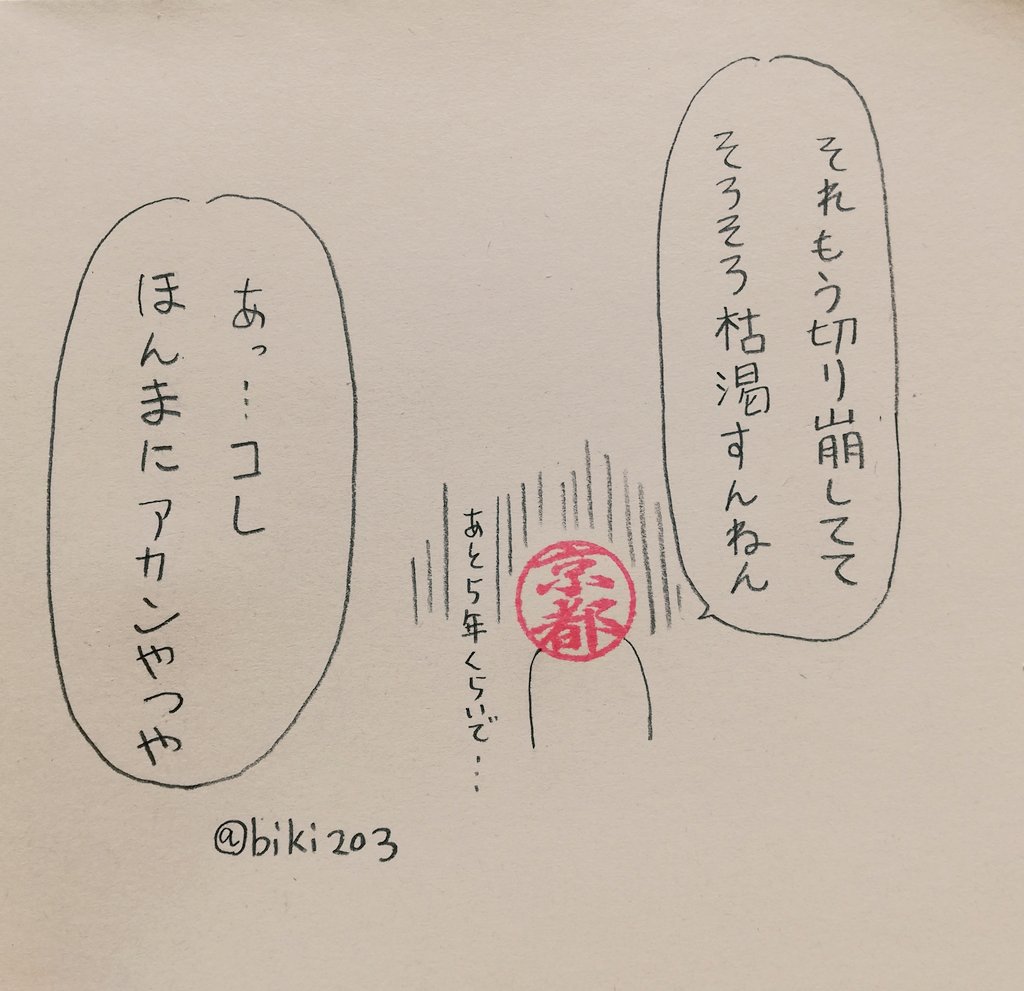 それもう切り崩してて
そろそろ枯渇すんねん
京都
あと5年くらいで…
あっ…コレ
ほんまにアカンやつや
@biki203